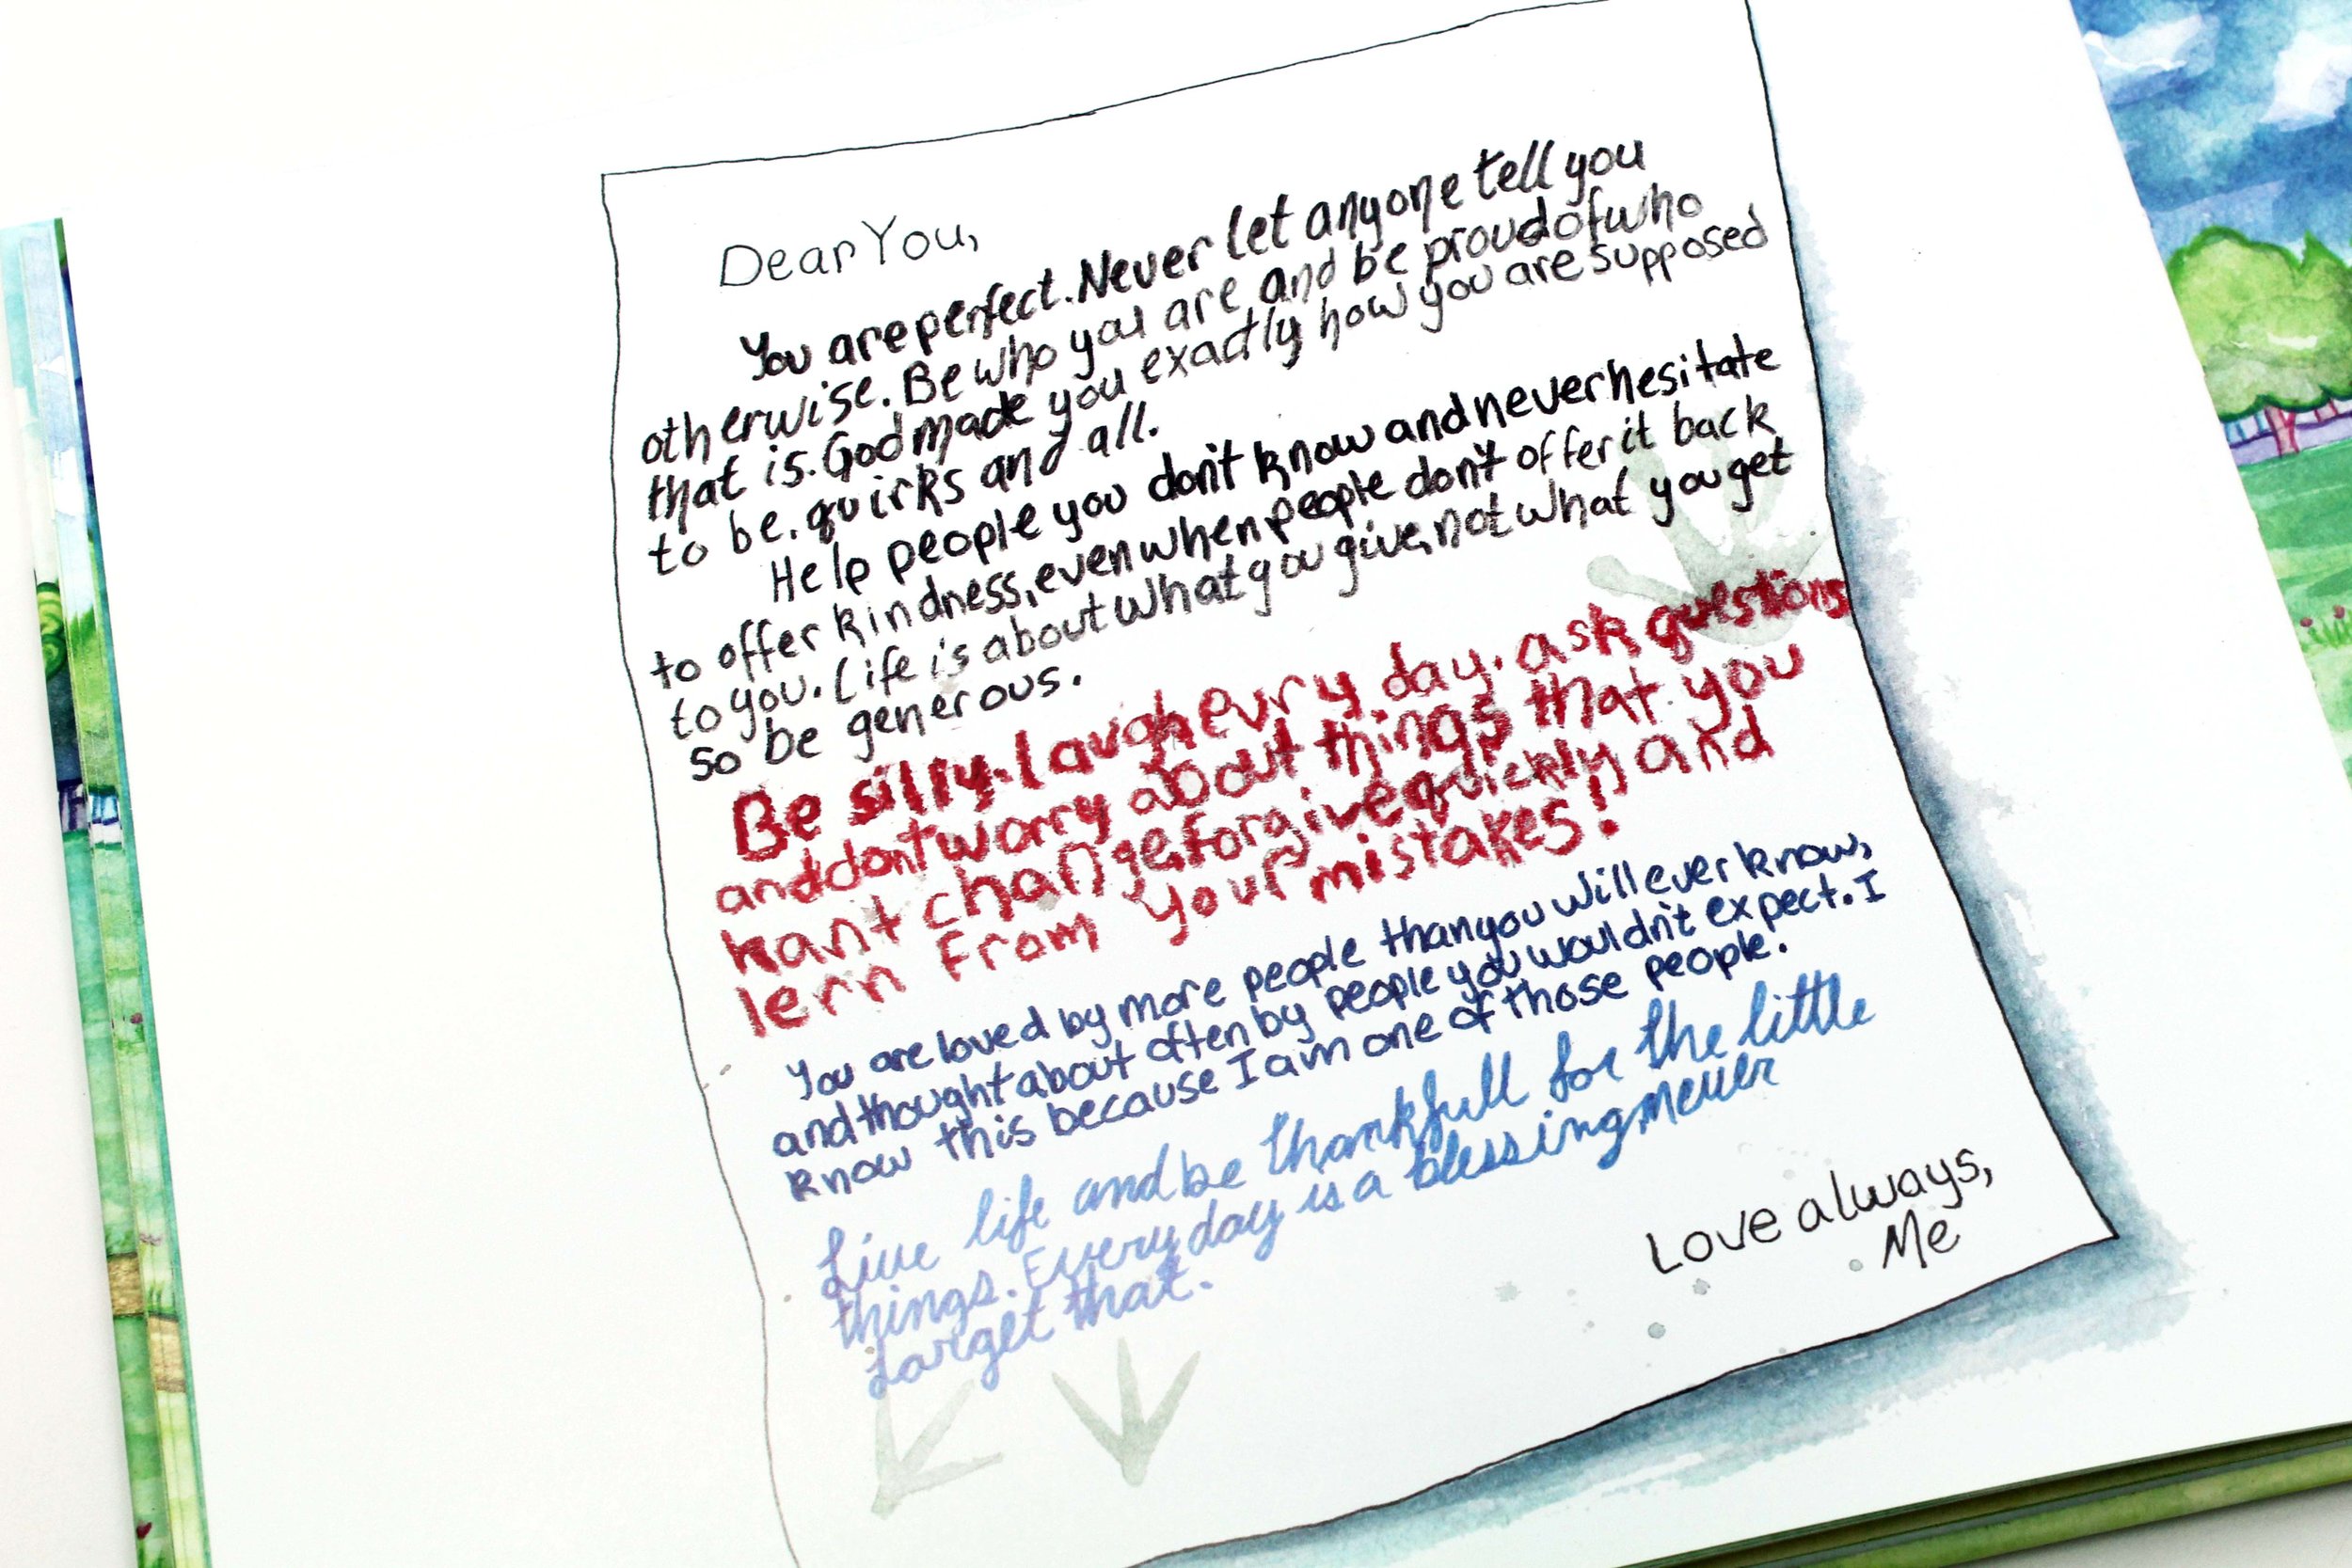 Dear You,
You are perfect. Never let anyone tell you
otherwise. Be who you are and be proud of who
that is. God made you exactly how you are supposed
to be. quirks and all.
Help people you don't know and never hesitate
to offer kindness, even when people don't offer it back
to you. Life is about what you give, not what you get
so be generous.
Be silly. laugh evry day. ask questions
and dont worry about things that you
kant change. forgive quickly and
lern from your mistakes!
You are loved by more people than you will ever know,
and thought about often by people you wouldn't expect. I
know this because I am one of those people.
Live life and be thankfull for the little
things. Every day is a blessing never
forget that.
Love always,
Me